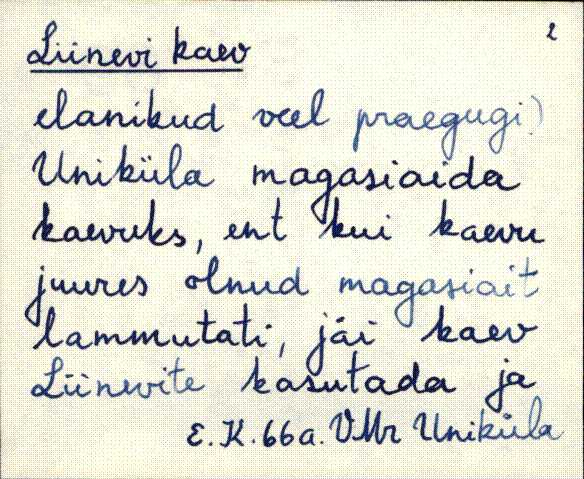 2
Liinevi kaev
elanikud veel praegugi)
Uniküla magasiaida
kaevuks, ent kui kaevu
juures olnud magasiait
lammutati, jäi kaev
Liinevite kasutada ja
E. K. 66a. VMr Uniküla